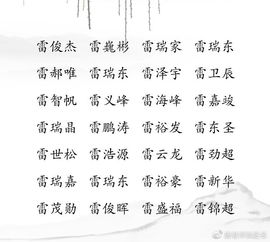 雷俊杰 雷巍彬 雷瑞家 雷瑞东
雷郝唯 雷瑞东 雷泽宇 雷卫辰
雷智帆 雷义峰 雷海峰 雷嘉竣
雷瑞晶 雷鹏涛 雷裕发 雷东圣
雷世松 雷浩源 雷云龙 雷劲超
雷瑞嘉 雷瑞东 雷裕豪 雷新华
雷茂勋 雷俊晖 雷盛福 雷锦超